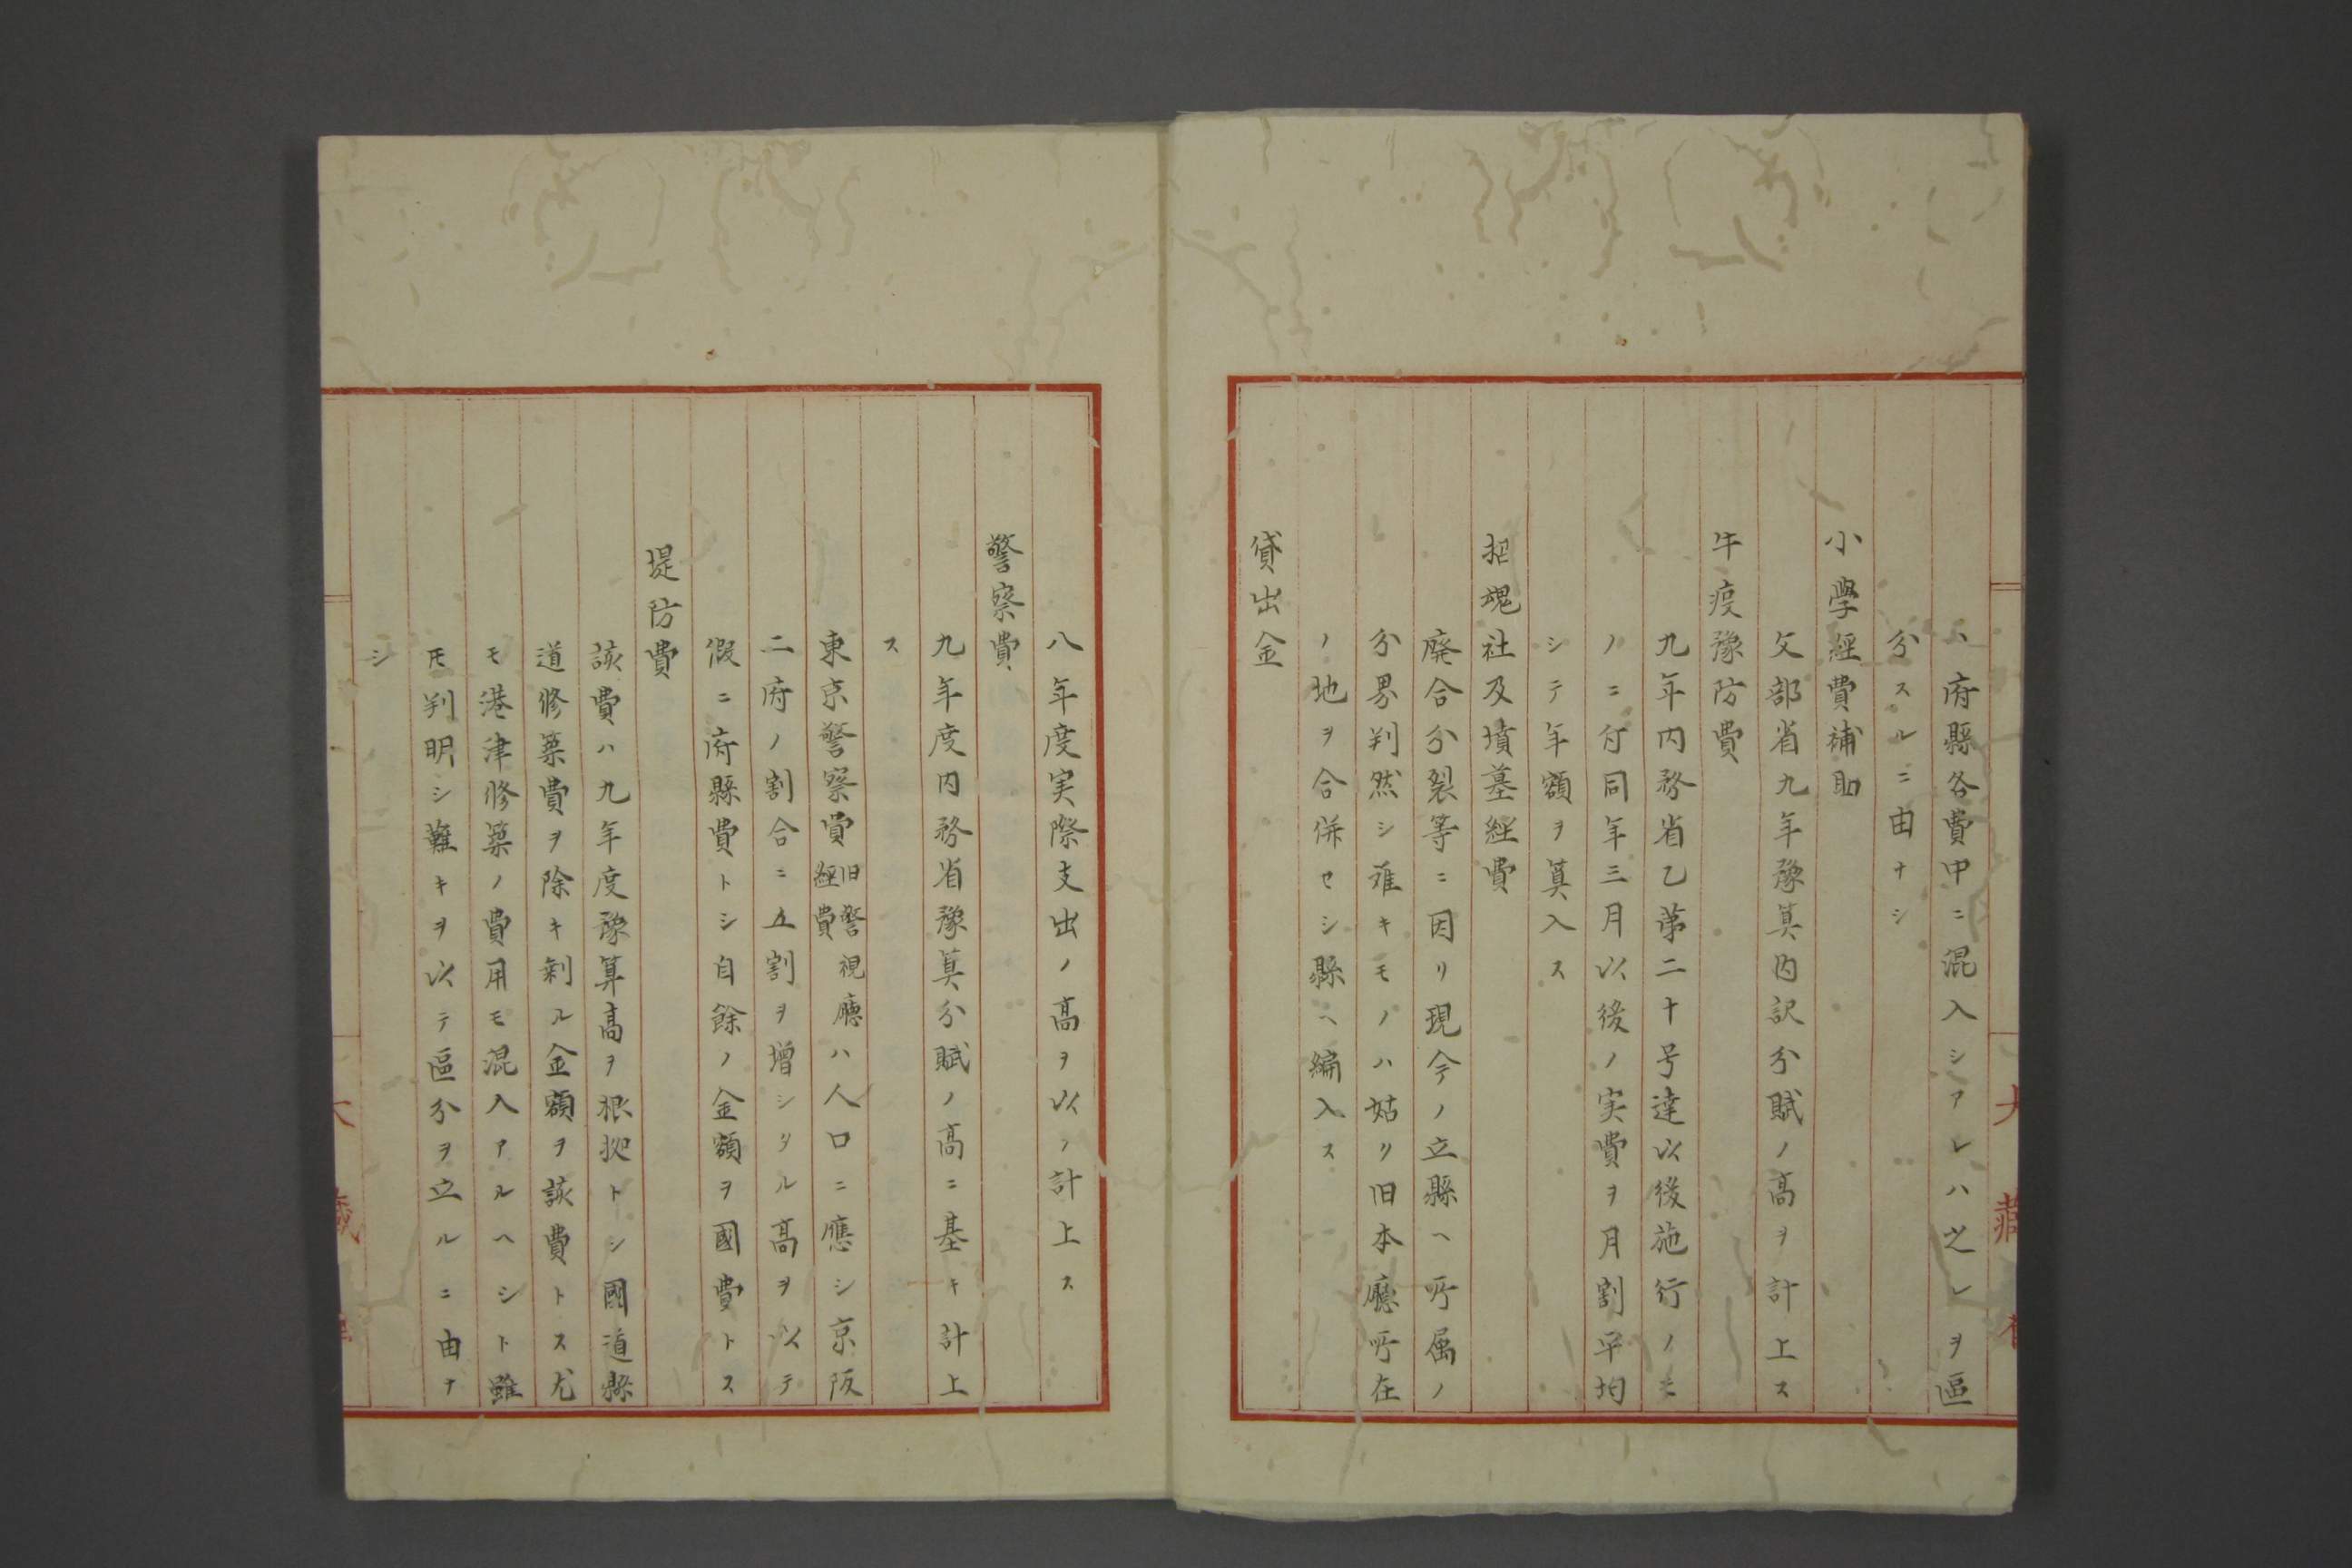 ハ府縣各費中ニ混入シアレハ之レヲ區
分スルニ由ナシ
小學經費補助
文部省九年豫算内訳分賦ノ高ヲ計上ス
牛疫豫防費
九年内務省乙第二十号達以後施行ノモ
ノニ付同年三月以後ノ実費ヲ月割平均
シテ年額ヲ算入ス
招魂社及墳墓經費
廃合分裂等ニ因リ現今ノ立縣ヘ所属ノ
分界判然シ難キモノハ姑リ旧本廳所在
ノ地ヲ合併セシ縣ヘ編入ス
貸出金
八年度実際支出ノ高ヲ以ノ計上ス
警察費
九年度内務省豫算分賦ノ高ニ基キ計上
ス
東京警察費旧警視廳經費ハ人口ニ應シ京阪
二府ノ割合ニ五割ヲ増シタル高ヲ以テ
假ニ府縣費トシ自餘ノ金額ヲ國費トス
堤防費
該費ハ九年度豫算高ヲ根拠トシ國道縣
道修築費ヲ除キ剰ル金額ヲ該費トス尤
モ港津修築ノ費用モ混入アルヘシト雖
𪜈判明シ難キヲ以テ區分ヲ立ルニ由ナ
シ
大藏省